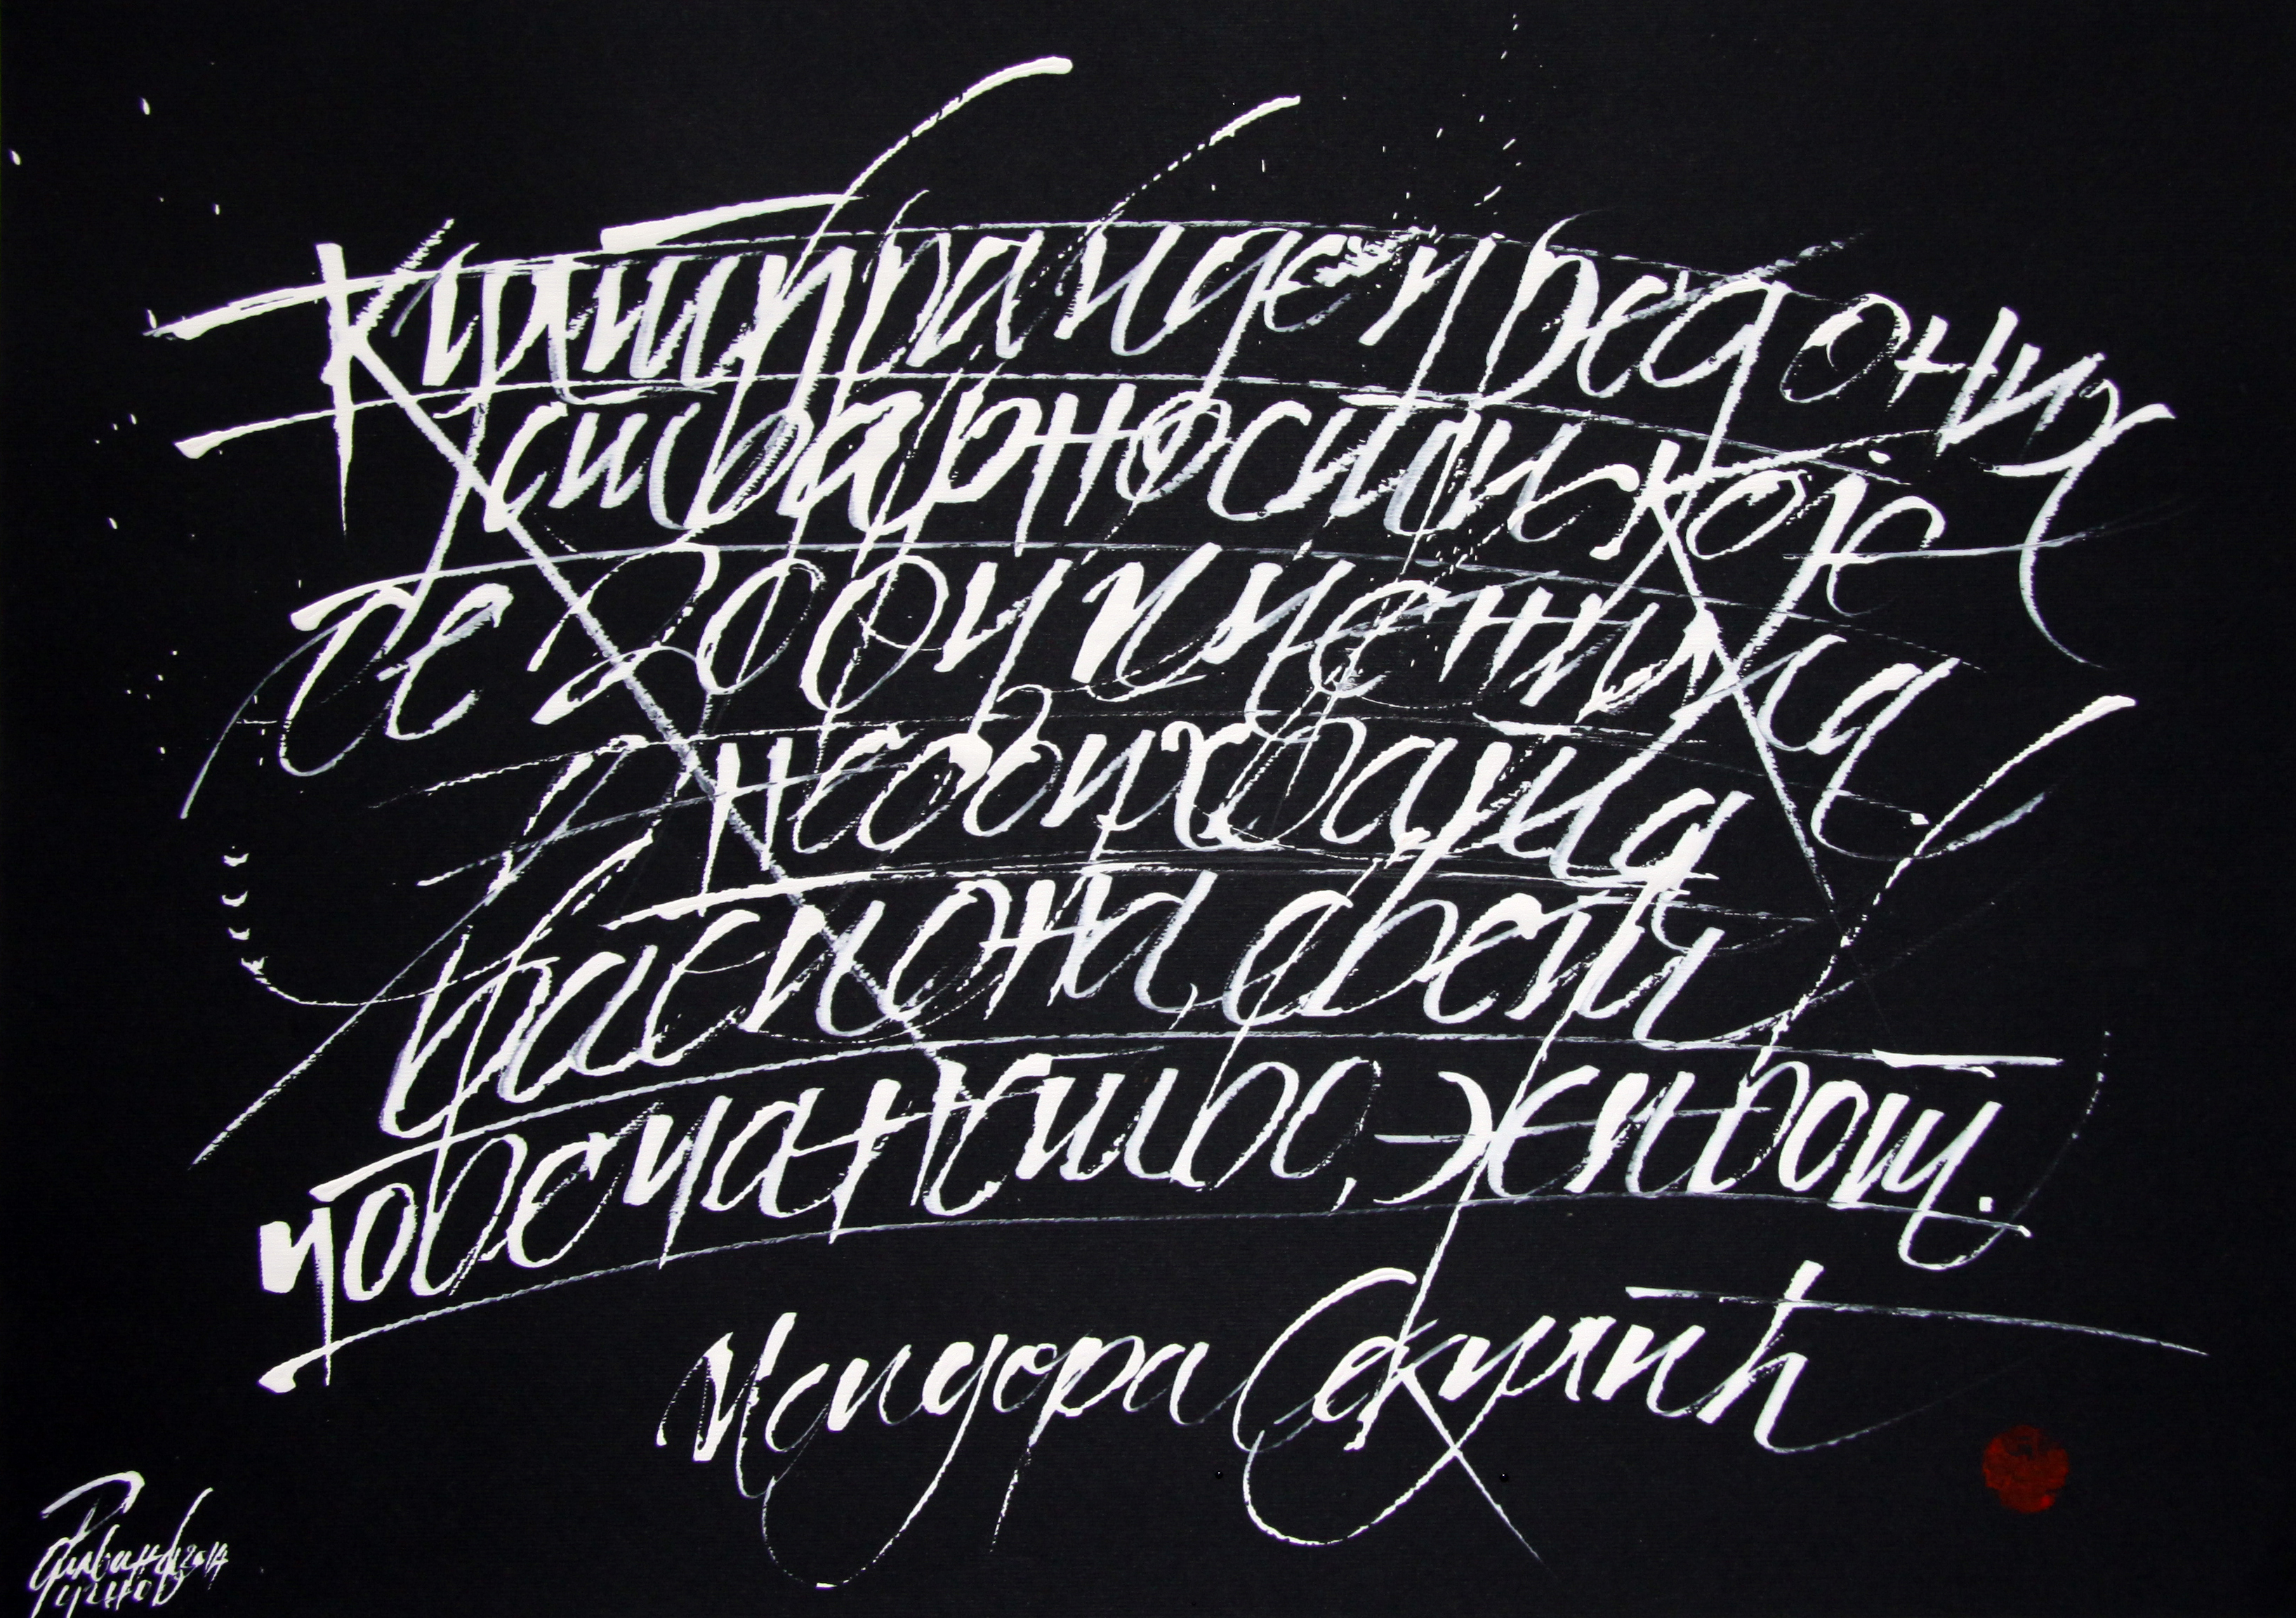 Култура иде у ред оних
стварности које
се зову
необухватна
васиона, свет,
човечанство, живот.
Исидора Секулић
2014